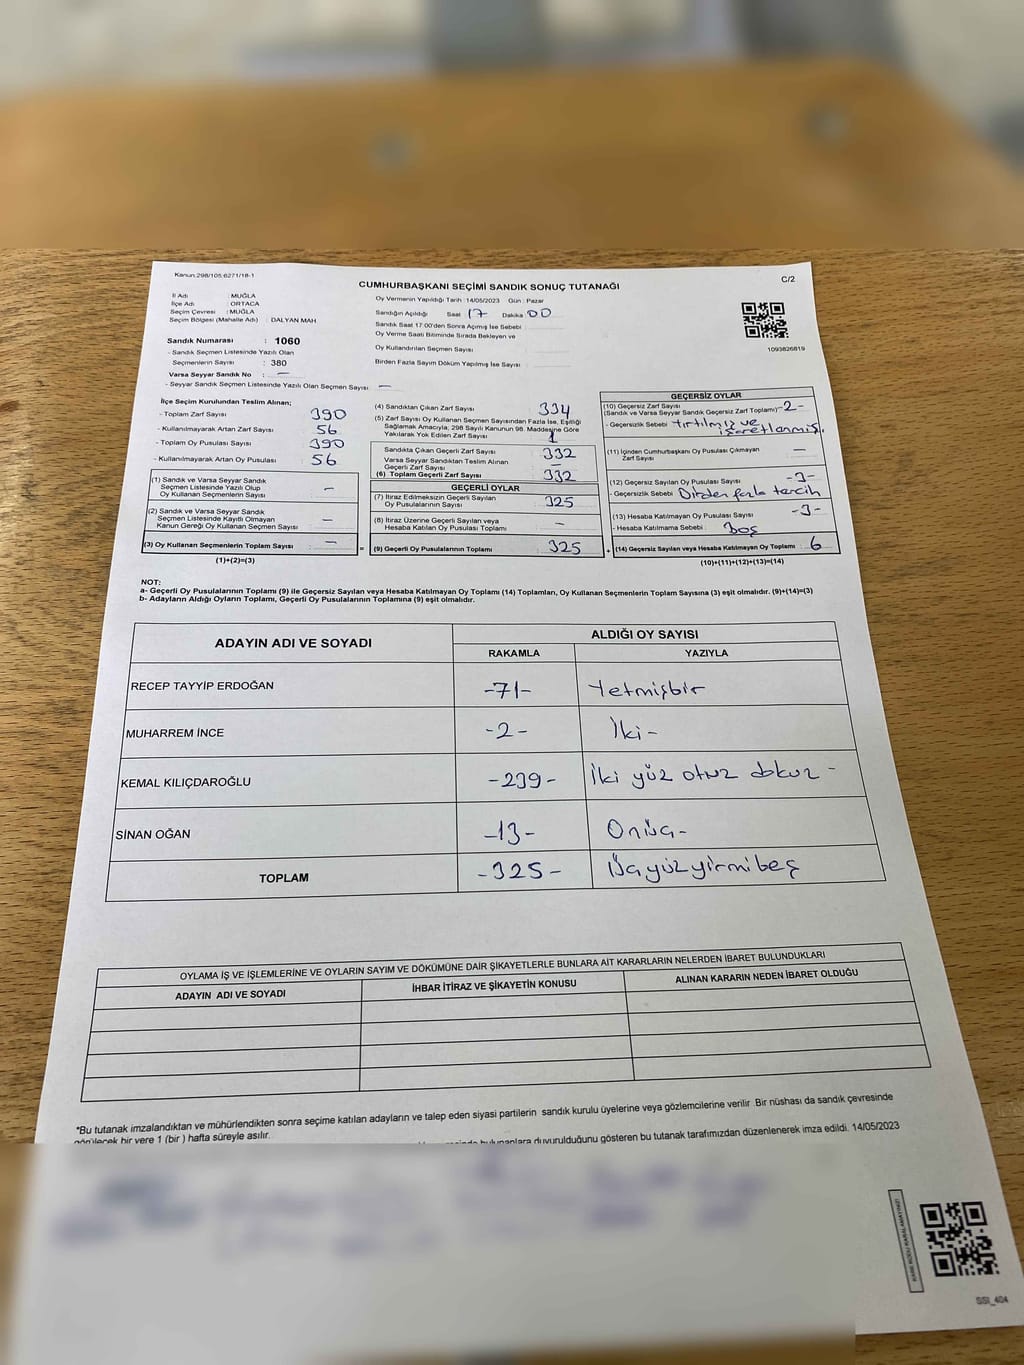 Kanun:298/105.6271/18-1
C/2
CUMHURBAŞKANI SEÇİMİ SANDIK SONUÇ TUTANAĞI
İl Adı : MUĞLA
İlçe Adı : ORTACA
Seçim Çevresi : MUĞLA
Seçim Bölgesi (Mahalle Adı) : DALYAN MAH
Sandık Numarası : 1060
- Sandık Seçmen Listesinde Yazılı Olan
Seçmenlerin Sayısı : 380
Varsa Seyyar Sandık No : —
- Seyyar Sandık Seçmen Listesinde Yazılı Olan Seçmen Sayısı —
Oy Vermenin Yapıldığı Tarih : 14/05/2023 Gün : Pazar
Sandığın Açıldığı Saat 17 Dakika 00
Sandık Saat 17.00'den Sonra Açımış İse Sebebi
Oy Verme Saati Bitiminde Sırada Bekleyen ve
Oy Kullandırılan Seçmen Sayısı
Birden Fazla Sayım Döküm Yapılmış İse Sayısı :
1093826819
İlçe Seçim Kurulundan Teslim Alınan;
- Toplam Zarf Sayısı 390
- Kullanılmayarak Artan Zarf Sayısı 56
- Toplam Oy Pusulası Sayısı 390
- Kullanılmayarak Artan Oy Pusulası 56
(1) Sandık ve Varsa Seyyar Sandık
Seçmen Listesinde Yazılı Olup
Oy Kullanan Seçmenlerin Sayısı —
(2) Sandık ve Varsa Seyyar Sandık
Seçmen Listesinde Kayıtlı Olmayan
Kanun Gereği Oy Kullanan Seçmen Sayısı —
(3) Oy Kullanan Seçmenlerin Toplam Sayısı —
(1)+(2)=(3)
=
(4) Sandıktan Çıkan Zarf Sayısı 334
(5) Zarf Sayısı Oy Kullanan Seçmen Sayısından Fazla İse, Eşitliği
Sağlamak Amacıyla; 298 Sayılı Kanunun 98. Maddesine Göre
Yakılarak Yok Edilen Zarf Sayısı
Sandıkta Çıkan Geçerli Zarf Sayısı 332
Varsa Seyyar Sandıktan Teslim Alınan
Geçerli Zarf Sayısı —
(6) Toplam Geçerli Zarf Sayısı 332
GEÇERLİ OYLAR
(7) İtiraz Edilmeksizin Geçerli Sayılan
Oy Pusulalarının Sayısı 325
(8) İtiraz Üzerine Geçerli Sayılan veya
Hesaba Katılan Oy Pusulası Toplamı —
(9) Geçerli Oy Pusulalarının Toplamı 325
+
GEÇERSİZ OYLAR
(10) Geçersiz Zarf Sayısı
(Sandık ve Varsa Seyyar Sandık Geçersiz Zarf Toplamı) -2-
- Geçersizlik Sebebi Yırtılmış ve
işaretlenmiş.
(11) İçinden Cumhurbaşkanı Oy Pusulası Çıkmayan
Zarf Sayısı —
(12) Geçersiz Sayılan Oy Pusulası Sayısı -3-
- Geçersizlik Sebebi Birden fazla tercih
(13) Hesaba Katılmayan Oy Pusulası Sayısı -3-
- Hesaba Katılmama Sebebi : boş
(14) Geçersiz Sayılan veya Hesaba Katılmayan Oy Toplamı : 6
(10)+(11)+(12)+(13)=(14)
NOT:
a- Geçerli Oy Pusulalarının Toplamı (9) ile Geçersiz Sayılan veya Hesaba Katılmayan Oy Toplamı (14) Toplamları, Oy Kullanan Seçmenlerin Toplam Sayısına (3) eşit olmalıdır. (9)+(14)=(3)
b- Adayların Aldığı Oyların Toplamı, Geçerli Oy Pusulalarının Toplamına (9) eşit olmalıdır.
ADAYIN ADI VE SOYADI ALDIĞI OY SAYISI
RAKAMLA YAZIYLA
RECEP TAYYİP ERDOĞAN -71- Yetmişbir
MUHARREM İNCE -2- İki-
KEMAL KILIÇDAROĞLU -239- İki yüz otuz dokuz -
SİNAN OĞAN -13- Onüç-
TOPLAM -325- Üçyüzyirmibeş
OYLAMA İŞ VE İŞLEMLERİNE VE OYLARIN SAYIM VE DÖKÜMÜNE DAİR ŞİKAYETLERLE BUNLARA AİT KARARLARIN NELERDEN İBARET BULUNDUKLARI
ADAYIN ADI VE SOYADI İHBAR İTİRAZ VE ŞİKAYETİN KONUSU ALINAN KARARIN NEDEN İBARET OLDUĞU
*Bu tutanak imzalandıktan ve mühürlendikten sonra seçime katılan adayların ve talep eden siyasi partilerin sandık kurulu üyelerine veya gözlemcilerine verilir. Bir nüshası da sandık çevresinde
görülecek bir yere 1 (bir ) hafta süreyle asılır.
bulunanlara duyurulduğunu gösteren bu tutanak tarafımızdan düzenlenerek imza edildi. 14/05/2023
KARE KODU KARALAMAYINIZ!
SSI_404